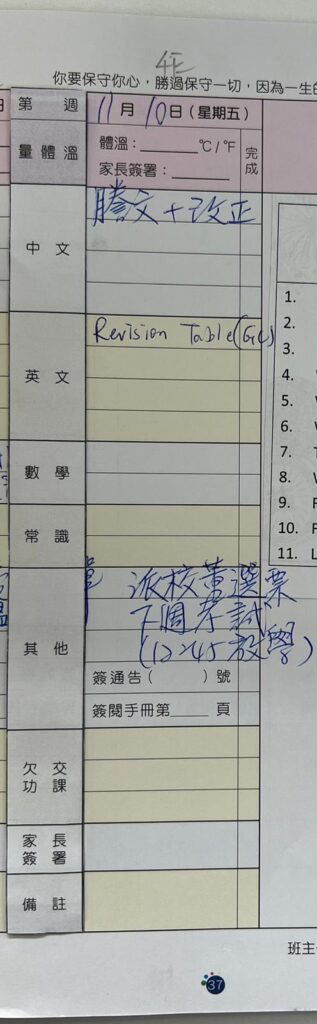 4E
你要保守你心，勝過保守一切，因為一生的
第 週 11月10日(星期五)
量體溫 體溫：______℃/℉ 完成
家長簽署：______
中文 謄文+改正
英文 Revision Table(GC)
數學
常識
其他 派校董選票
下週考試
(12:45放學)
簽通告( )號
簽閱手冊第____頁
欠交功課
家長簽署
備註
1.
2.
3.
4.
5.
6.
7.
8.
9.
10.
11.
班主
37